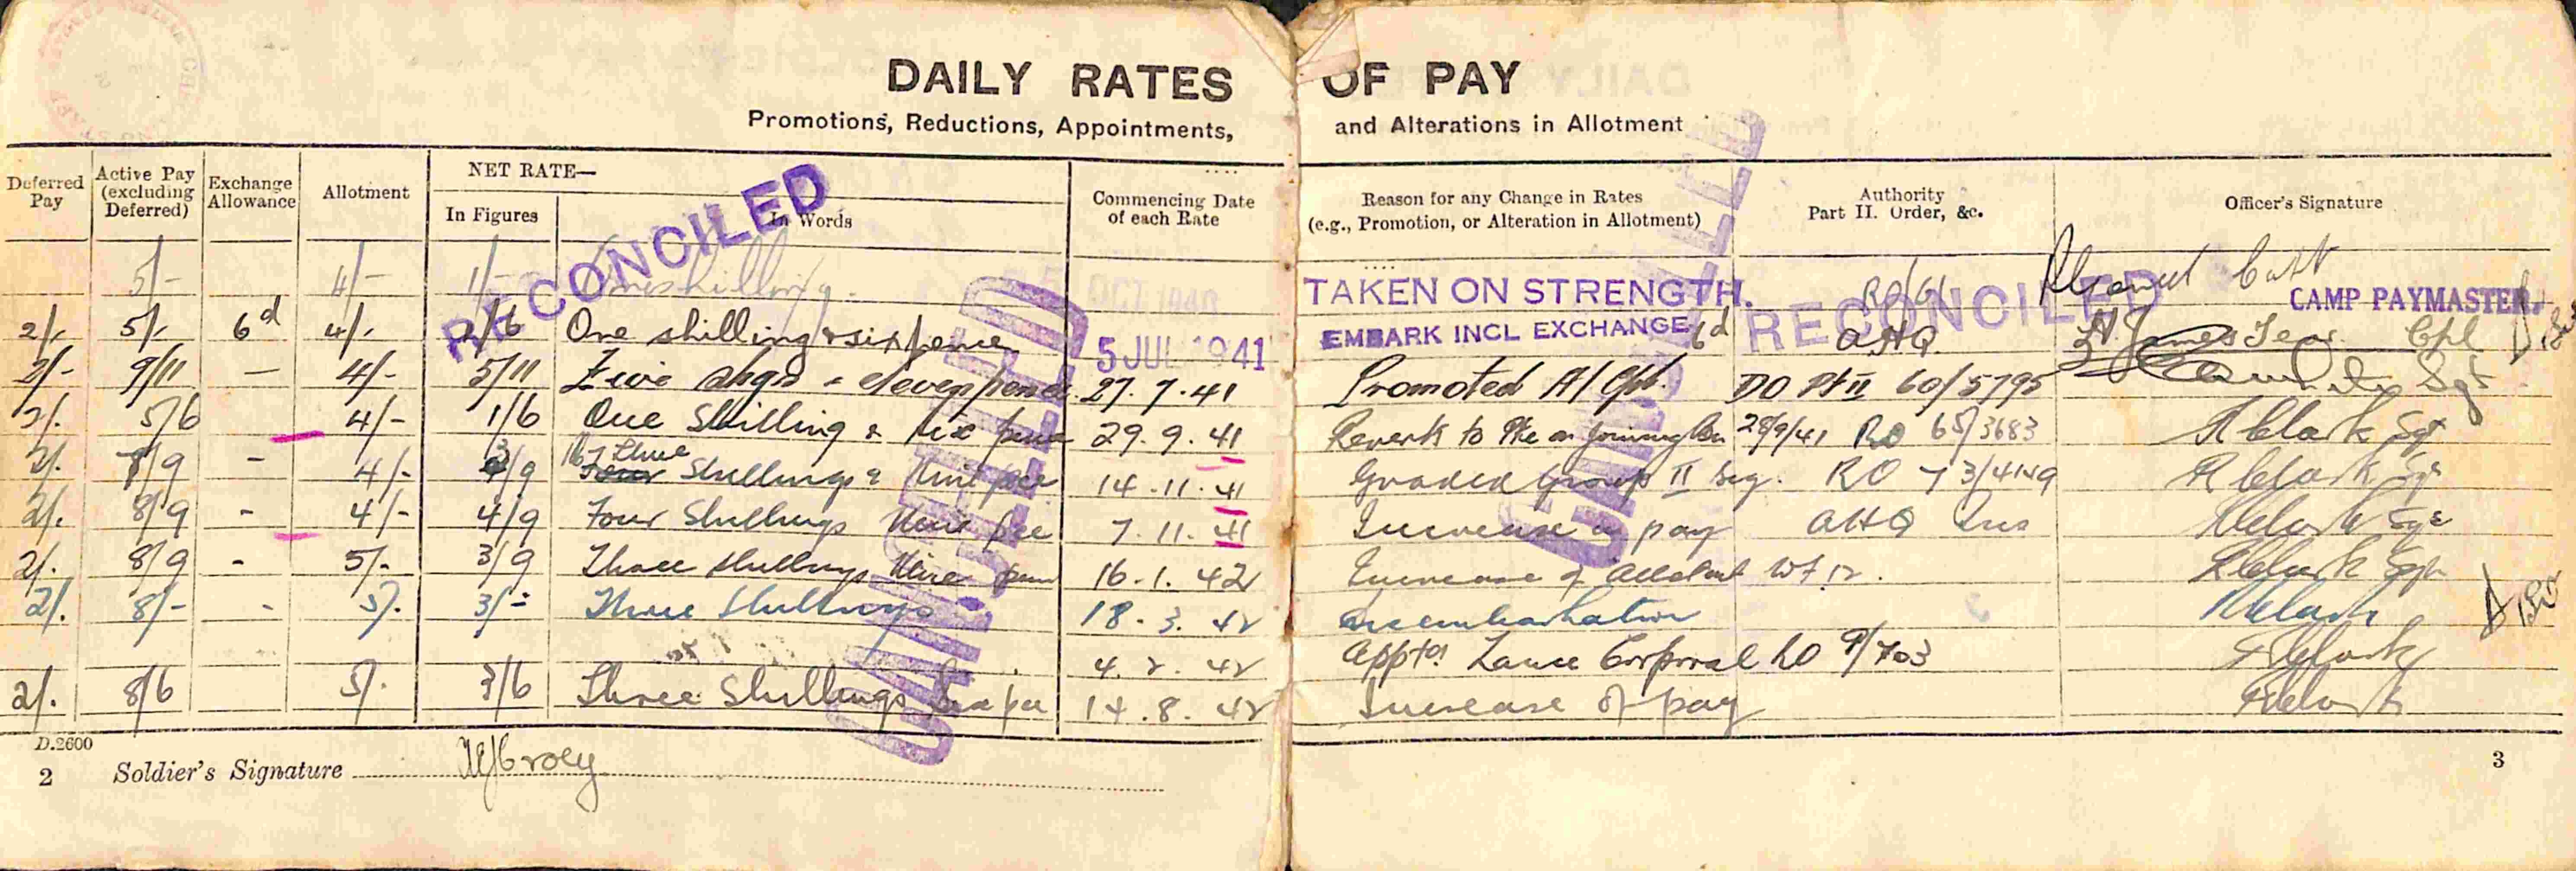 DAILY RATES OF PAY
Promotions, Reductions, Appointments, and Alterations in Allotment
Deferred Pay
Active Pay (excluding Deferred)
Exchange Allowance
Allotment
NET RATE—
In Figures
In Words
Commencing Date of each Rate
Reason for any Change in Rates (e.g., Promotion, or Alteration in Allotment)
Authority Part II. Order, &c.
Officer's Signature
RECONCILED
CANCELLED
CANCELLED
RECONCILED
5/- 4/- 1/- One shilling. OCT 1940 TAKEN ON STRENGTH. Capt
CAMP PAYMASTER.
2/- 5/- 6d 4/- 1/6 One shilling & sixpence 5 JUL 1941 EMBARK INCL EXCHANGE 6d AHQ Cpl
2/- 9/11 — 4/- 5/11 Five shgs & elevenpence 27.7.41 Promoted A/Cpl. DO Pt II 60/5795 Sgt
2/. 5/6 4/- 1/6 One Shilling & six pence 29.9.41 Reverts to Pte on joining Bn 28/9/41 RO 65/3683 Clark Sgt
2/. 7/9 - 4/- 3/9 Three Shillings & Nine pce 14.11.41 Graded Group II Sig. RO 73/4149 Clark Sgt
2/. 8/9 - 4/- 4/9 Four Shillings Nine pce 7.11.41 Increase in pay AHQ Ins Clark Sgt
2/. 8/9 - 5/- 3/9 Three shillings Nine pence 16.1.42 Increase of allotment Clark Sgt
2/. 8/- - 5/. 3/- Three Shillings 18.3.42 Disembarkation Clark
4.2.42 Apptd Lance Corporal RO 9/703 Clark
2/. 8/6 5/. 3/6 Three Shillings Six pce 14.8.42 Increase of pay Clark
D.2600
2 Soldier's Signature
3